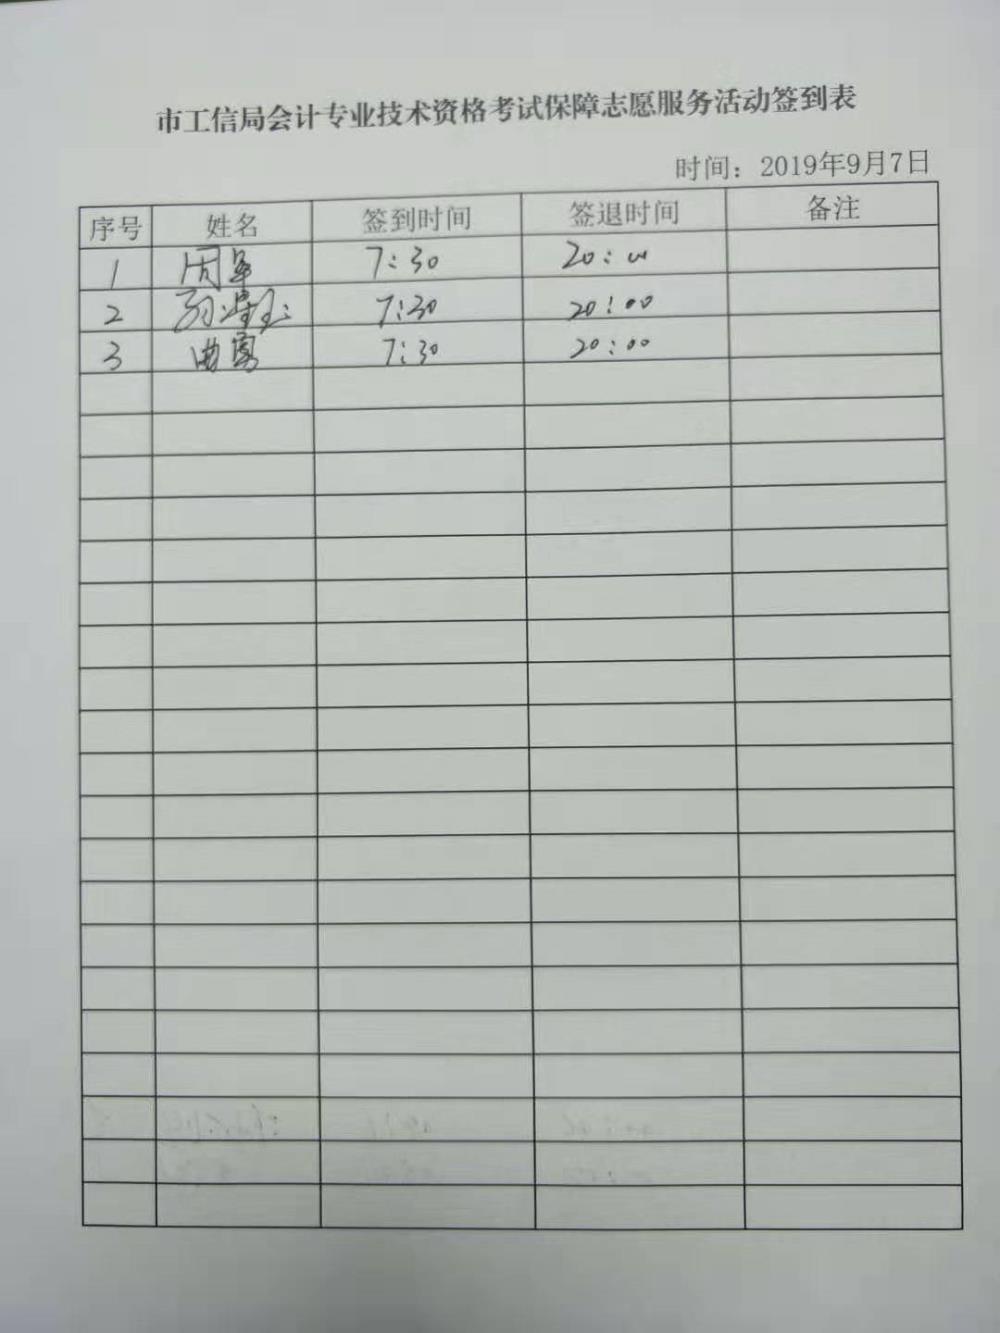 市工信局会计专业技术资格考试保障志愿服务活动签到表
时间：2019年9月7日
序号 姓名 签到时间 签退时间 备注
1 周军 7:30 20:00
2 7:30 20:00
3 曲富 7:30 20:00